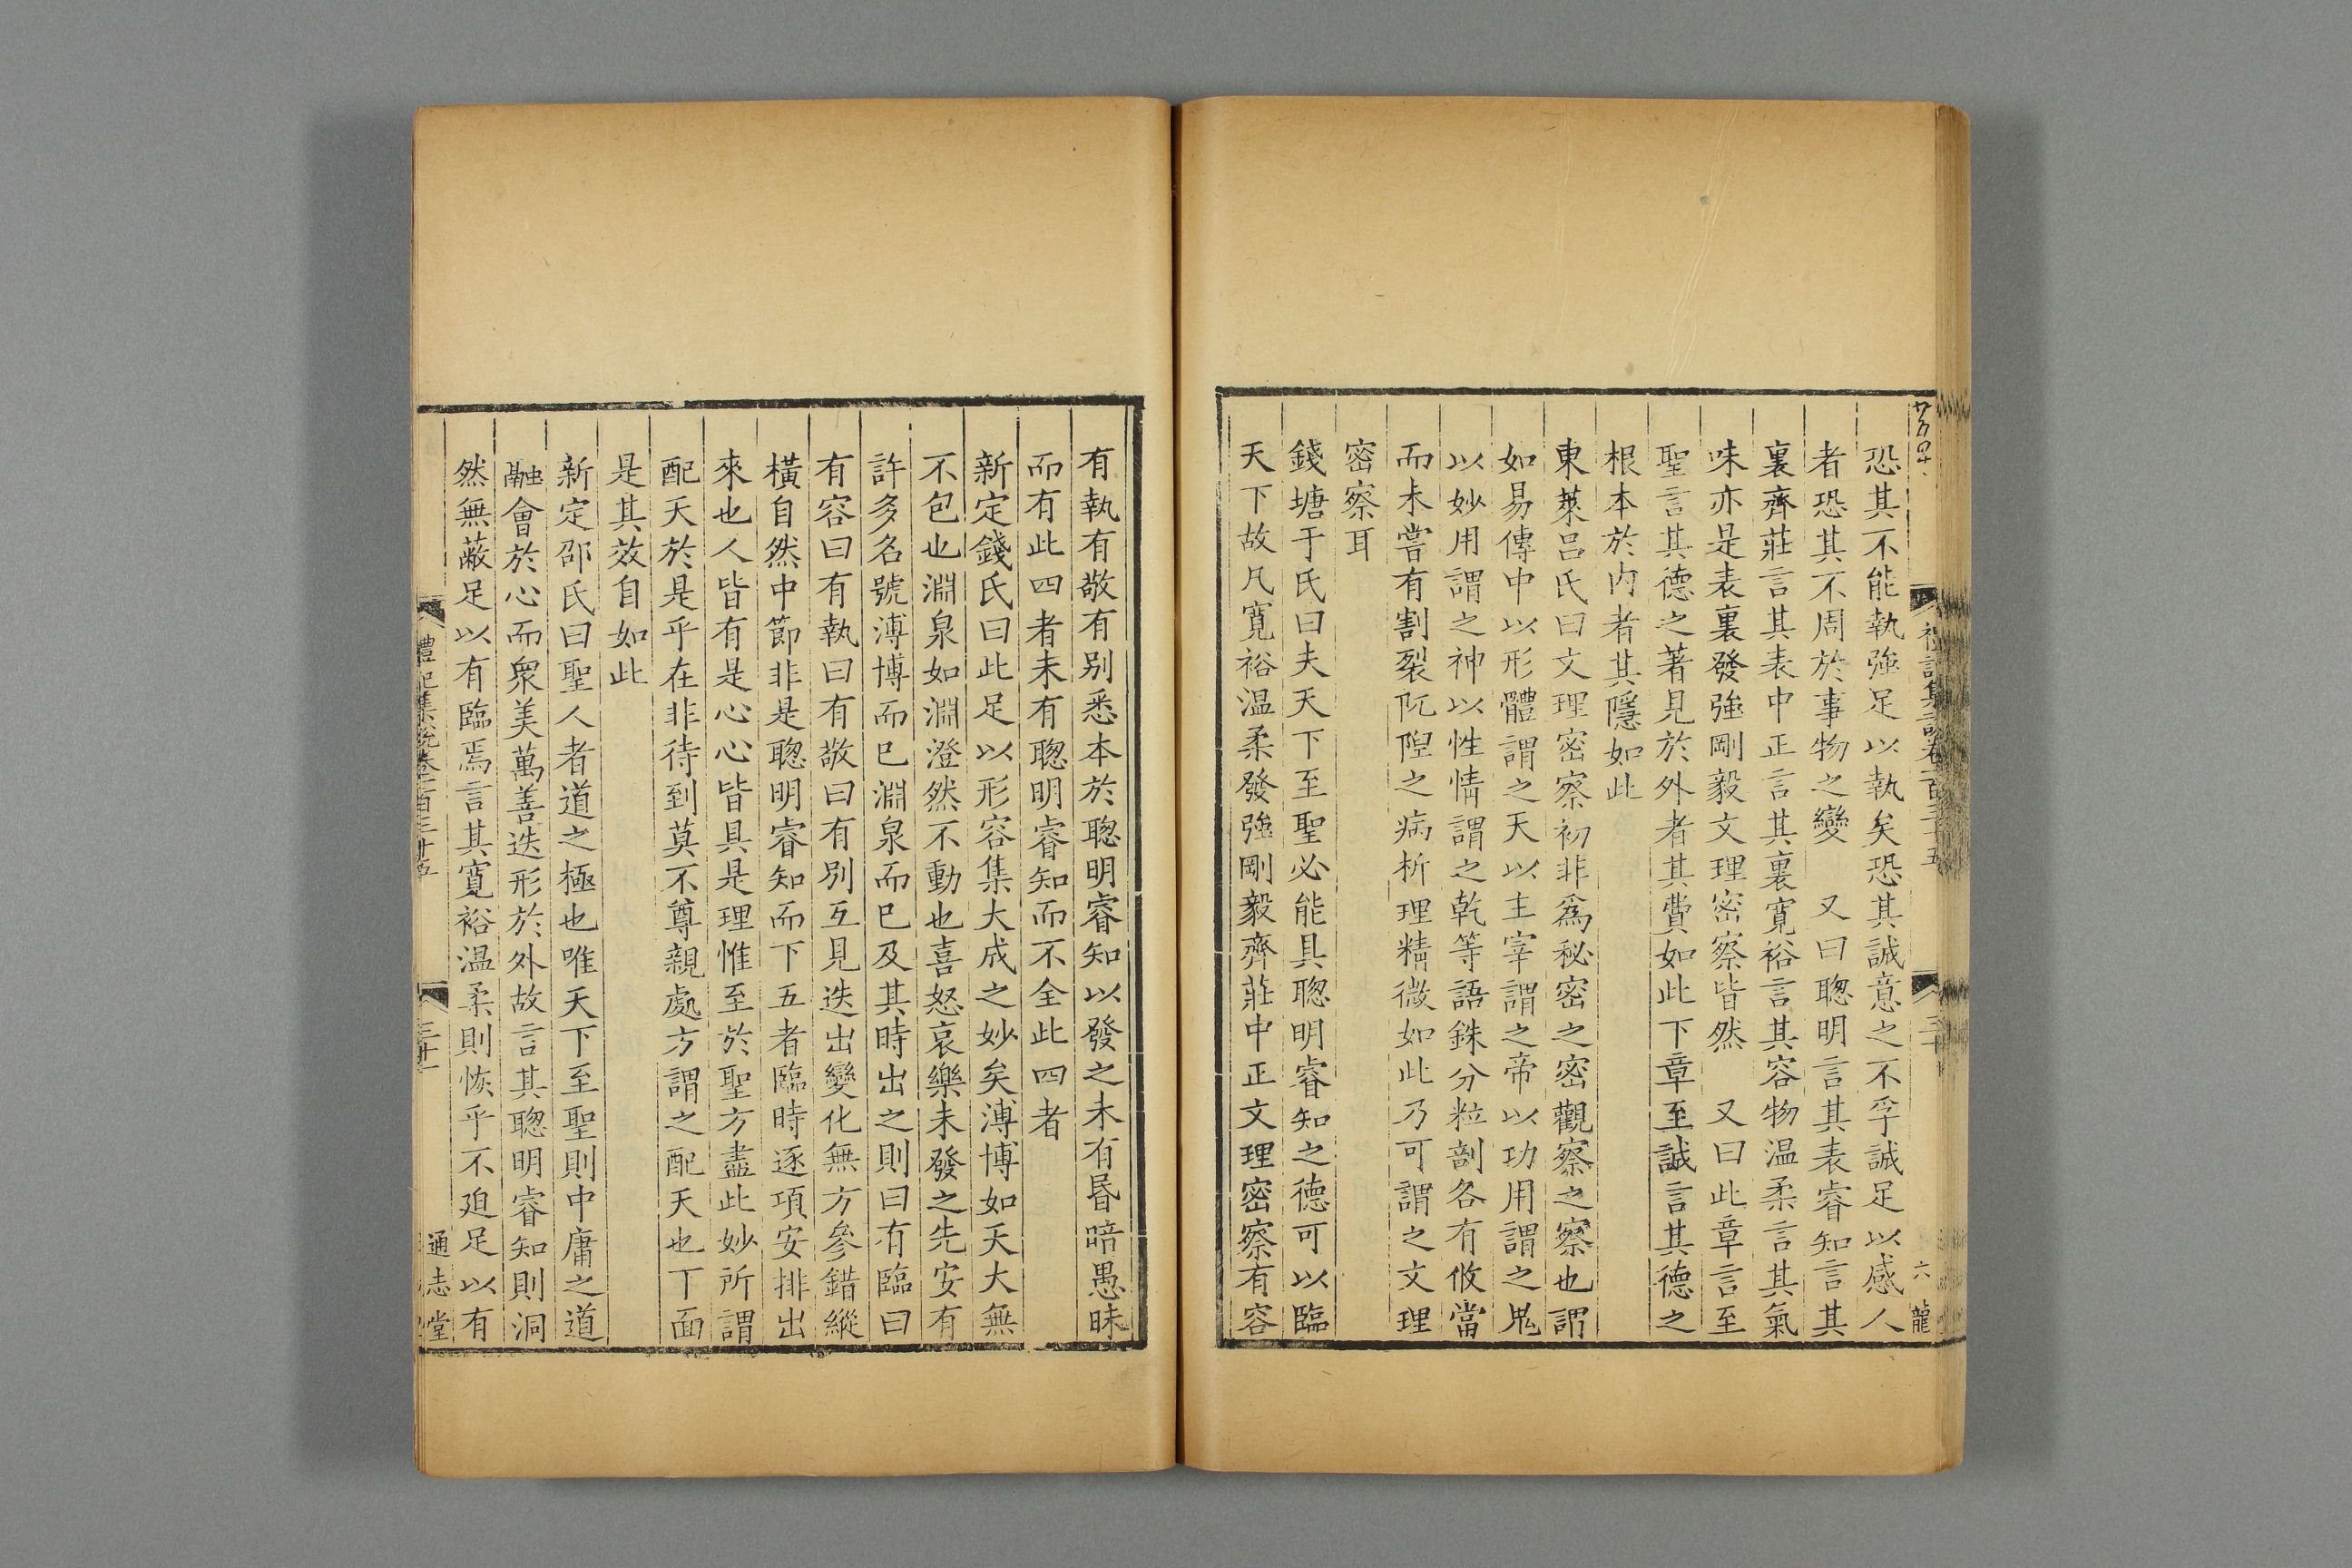 恐其不能執強足以執矣恐其誠意之不孚誠足以感人
者恐其不周於事物之變　又曰聰明言其表睿知言其
裏齊莊言其表中正言其裏寛裕言其容物温柔言其氣
味亦是表裏發強剛毅文理密察皆然　又曰此章言至
聖言其德之著見於外者其費如此下章至誠言其德之
根本於内者其隱如此
東萊吕氏曰文理密察初非爲秘密之密觀察之察也謂
如易傳中以形體謂之天以主宰謂之帝以功用謂之鬼
以妙用謂之神以性情謂之乾等語銖分粒剖各有攸當
而未嘗有割裂阢隉之病析理精微如此乃可謂之文理
密察耳
錢塘于氏曰夫天下至聖必能具聰明睿知之德可以臨
天下故凡寛裕温柔發強剛毅齊莊中正文理密察有容
有執有敬有别悉本於聰明睿知以發之未有昬暗愚昧
而有此四者未有聰明睿知而不全此四者
新定錢氏曰此足以形容集大成之妙矣溥博如天大無
不包也淵泉如淵澄然不動也喜怒哀樂未發之先安有
許多名號溥博而已淵泉而已及其時出之則曰有臨曰
有容曰有執曰有敬曰有别互見迭出變化無方參錯縱
橫自然中節非是聰明睿知而下五者臨時逐項安排出
來也人皆有是心心皆具是理惟至於聖方盡此妙所謂
配天於是乎在非待到莫不尊親處方謂之配天也下面
是其效自如此
新定邵氏曰聖人者道之極也唯天下至聖則中庸之道
融會於心而衆美萬善迭形於外故言其聰明睿知則洞
然無蔽足以有臨焉言其寛裕温柔則恢乎不廹足以有
禮記集說卷一百三十五
三十一
通志堂